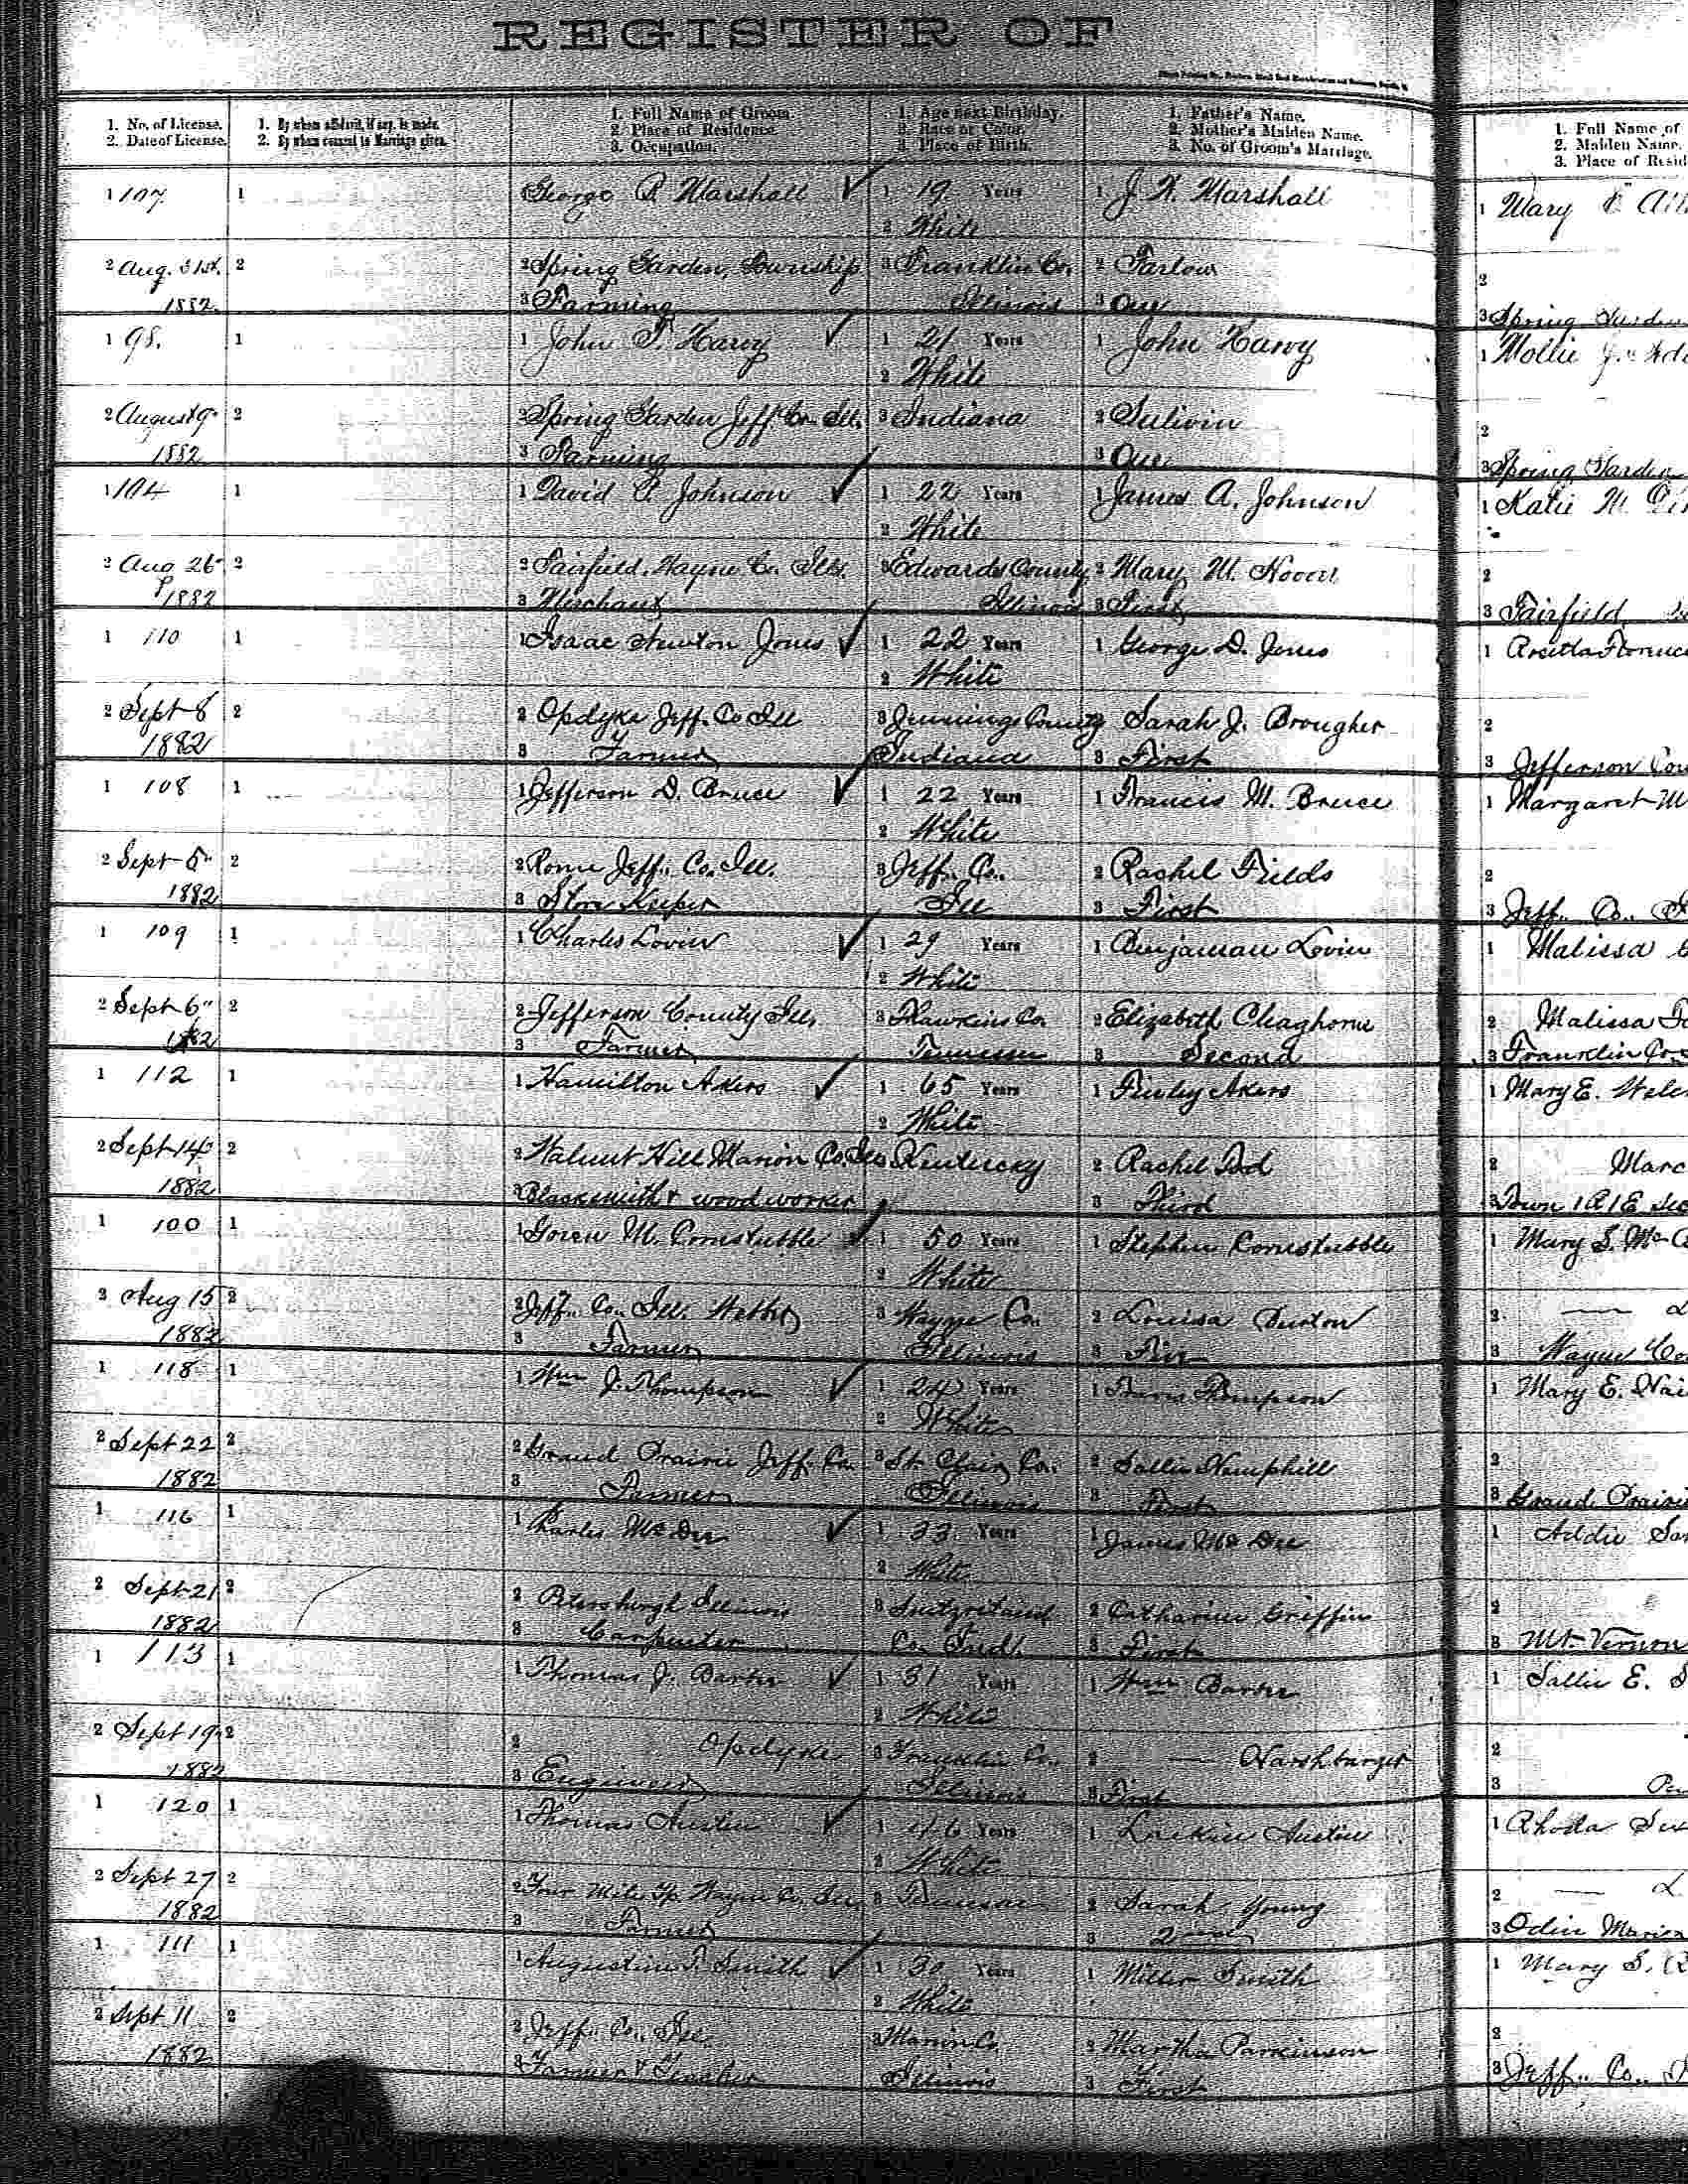 REGISTER OF
1. No. of License.
2. Date of License.
1. By whom affidavit, if any, is made.
2. By whom consent to Marriage given.
1. Full Name of Groom.
2. Place of Residence.
3. Occupation.
1. Age next Birthday.
2. Race or Color.
3. Place of Birth.
1. Father's Name.
2. Mother's Maiden Name.
3. No. of Groom's Marriage.
1. Full Name of
2. Maiden Name.
3. Place of Resid
1 107 1 George P. Marshall 1 19 Years 1 J. W. Marshall 1 Mary
2 White
2 Aug. 31st. 2 2 Spring Garden, Township 3 Franklin Co. 2 Farlow 2
1882 3 Farming Illinois 3 One 3 Spring Garden
1 98. 1 1 John T. Harvy 1 21 Years 1 John Harvy 1 Mollie J.
2 White
2 August 9 2 2 Spring Garden Jeff. Co. Ill. 3 Indiana 2 Sulivin 2
1882 3 Farming 3 One 3 Spring Garden
1 104 1 1 David P. Johnson 1 22 Years 1 James A. Johnson 1 Katie M.
2 White
2 Aug 26 2 2 Fairfield, Wayne Co. Ills. 3 Edwards County 2 Mary M. 2
1882 3 Merchant Illinois 3 First 3 Fairfield
1 110 1 1 Isaac Newton Jones 1 22 Years 1 George D. Jones 1 Florence
2 White
2 Sept 8 2 2 Opdyke Jeff. Co Ill 3 Jennings County Sarah J. Brougher 2
1882 3 Farmer Indiana 3 First 3 Jefferson Cou
1 108 1 1 Jefferson D. Bruce 1 22 Years 1 Francis M. Bruce 1 Margaret M
2 White
2 Sept 5" 2 2 Rome Jeff. Co. Ill. 3 Jeff. Co. 2 Rachel Fields 2
1882 3 Store Keeper Ill 3 First 3 Jeff. Co.
1 109 1 1 Charles Lovin 1 29 Years 1 Benjaman Lovin 1 Malissa
2 White
2 Sept 6" 2 2 Jefferson County Ill. 3 Hawkins Co. 2 Elizabeth Claghorne 2 Malissa
1882 3 Farmer Tennessee 3 Second 3 Franklin Co
1 112 1 1 Hamilton Akers 1 65 Years 1 Akers 1 Mary E.
2 White
2 Sept 14 2 2 Walnut Hill Marion Co. Ills 3 Kentucky 2 Rachel 2 Marc
1882 3 Blacksmith & wood worker 3 Third 3 Town 1 R 1 E Sec
1 100 1 1 M. Cornstubble 1 50 Years 1 Stephen Cornstubble 1 Mary S. Mc
2 White
2 Aug 15 2 2 Jeff. Co. Ill. Webber 3 Wayne Co. 2 Louisa Burton 2 —
1882 3 Farmer Illinois 3 3 Wayne Co
1 118 1 1 Wm J. Thompson 1 24 Years 1 Thompson 1 Mary E.
2 White
2 Sept 22 2 2 Grand Prairie Jeff. Co. 3 St. Clair Co. 2 Sallie Hemphill 2
1882 3 Farmer Illinois 3 First 3 Grand Prairie
1 116 1 1 Charles McDee 1 33 Years 1 James McDee 1 Addie
2 White
2 Sept 21 2 2 Petersburgh Illinois 3 Switzerland 2 Catharine Griffin 2
1882 3 Carpenter Co. Ind. 3 First 3 Mt. Vernon
1 113 1 1 Thomas J. Barter 1 31 Years 1 Wm Barter 1 Sallie E. S
2 White
2 Sept 19 2 2 Opdyke 3 Franklin Co. 2 — Harshbarger 2
1882 3 Engineer Illinois 3 First 3
1 120 1 1 Thomas Austin 1 46 Years 1 Austin 1 Rhoda
2 White
2 Sept 27 2 2 Four Mile Tp. Wayne Co. Ill. 3 2 Sarah Young 2 —
1882 3 Farmer 3 2nd 3 Odin Marion
1 111 1 1 Augustine T. Smith 1 30 Years 1 Smith 1 Mary S.
2 White
2 Sept 11 2 2 Jeff. Co. Ill 3 Marion Co. 2 Martha Parkinson 2
1882 3 Farmer & Teacher Illinois 3 First 3 Jeff. Co.